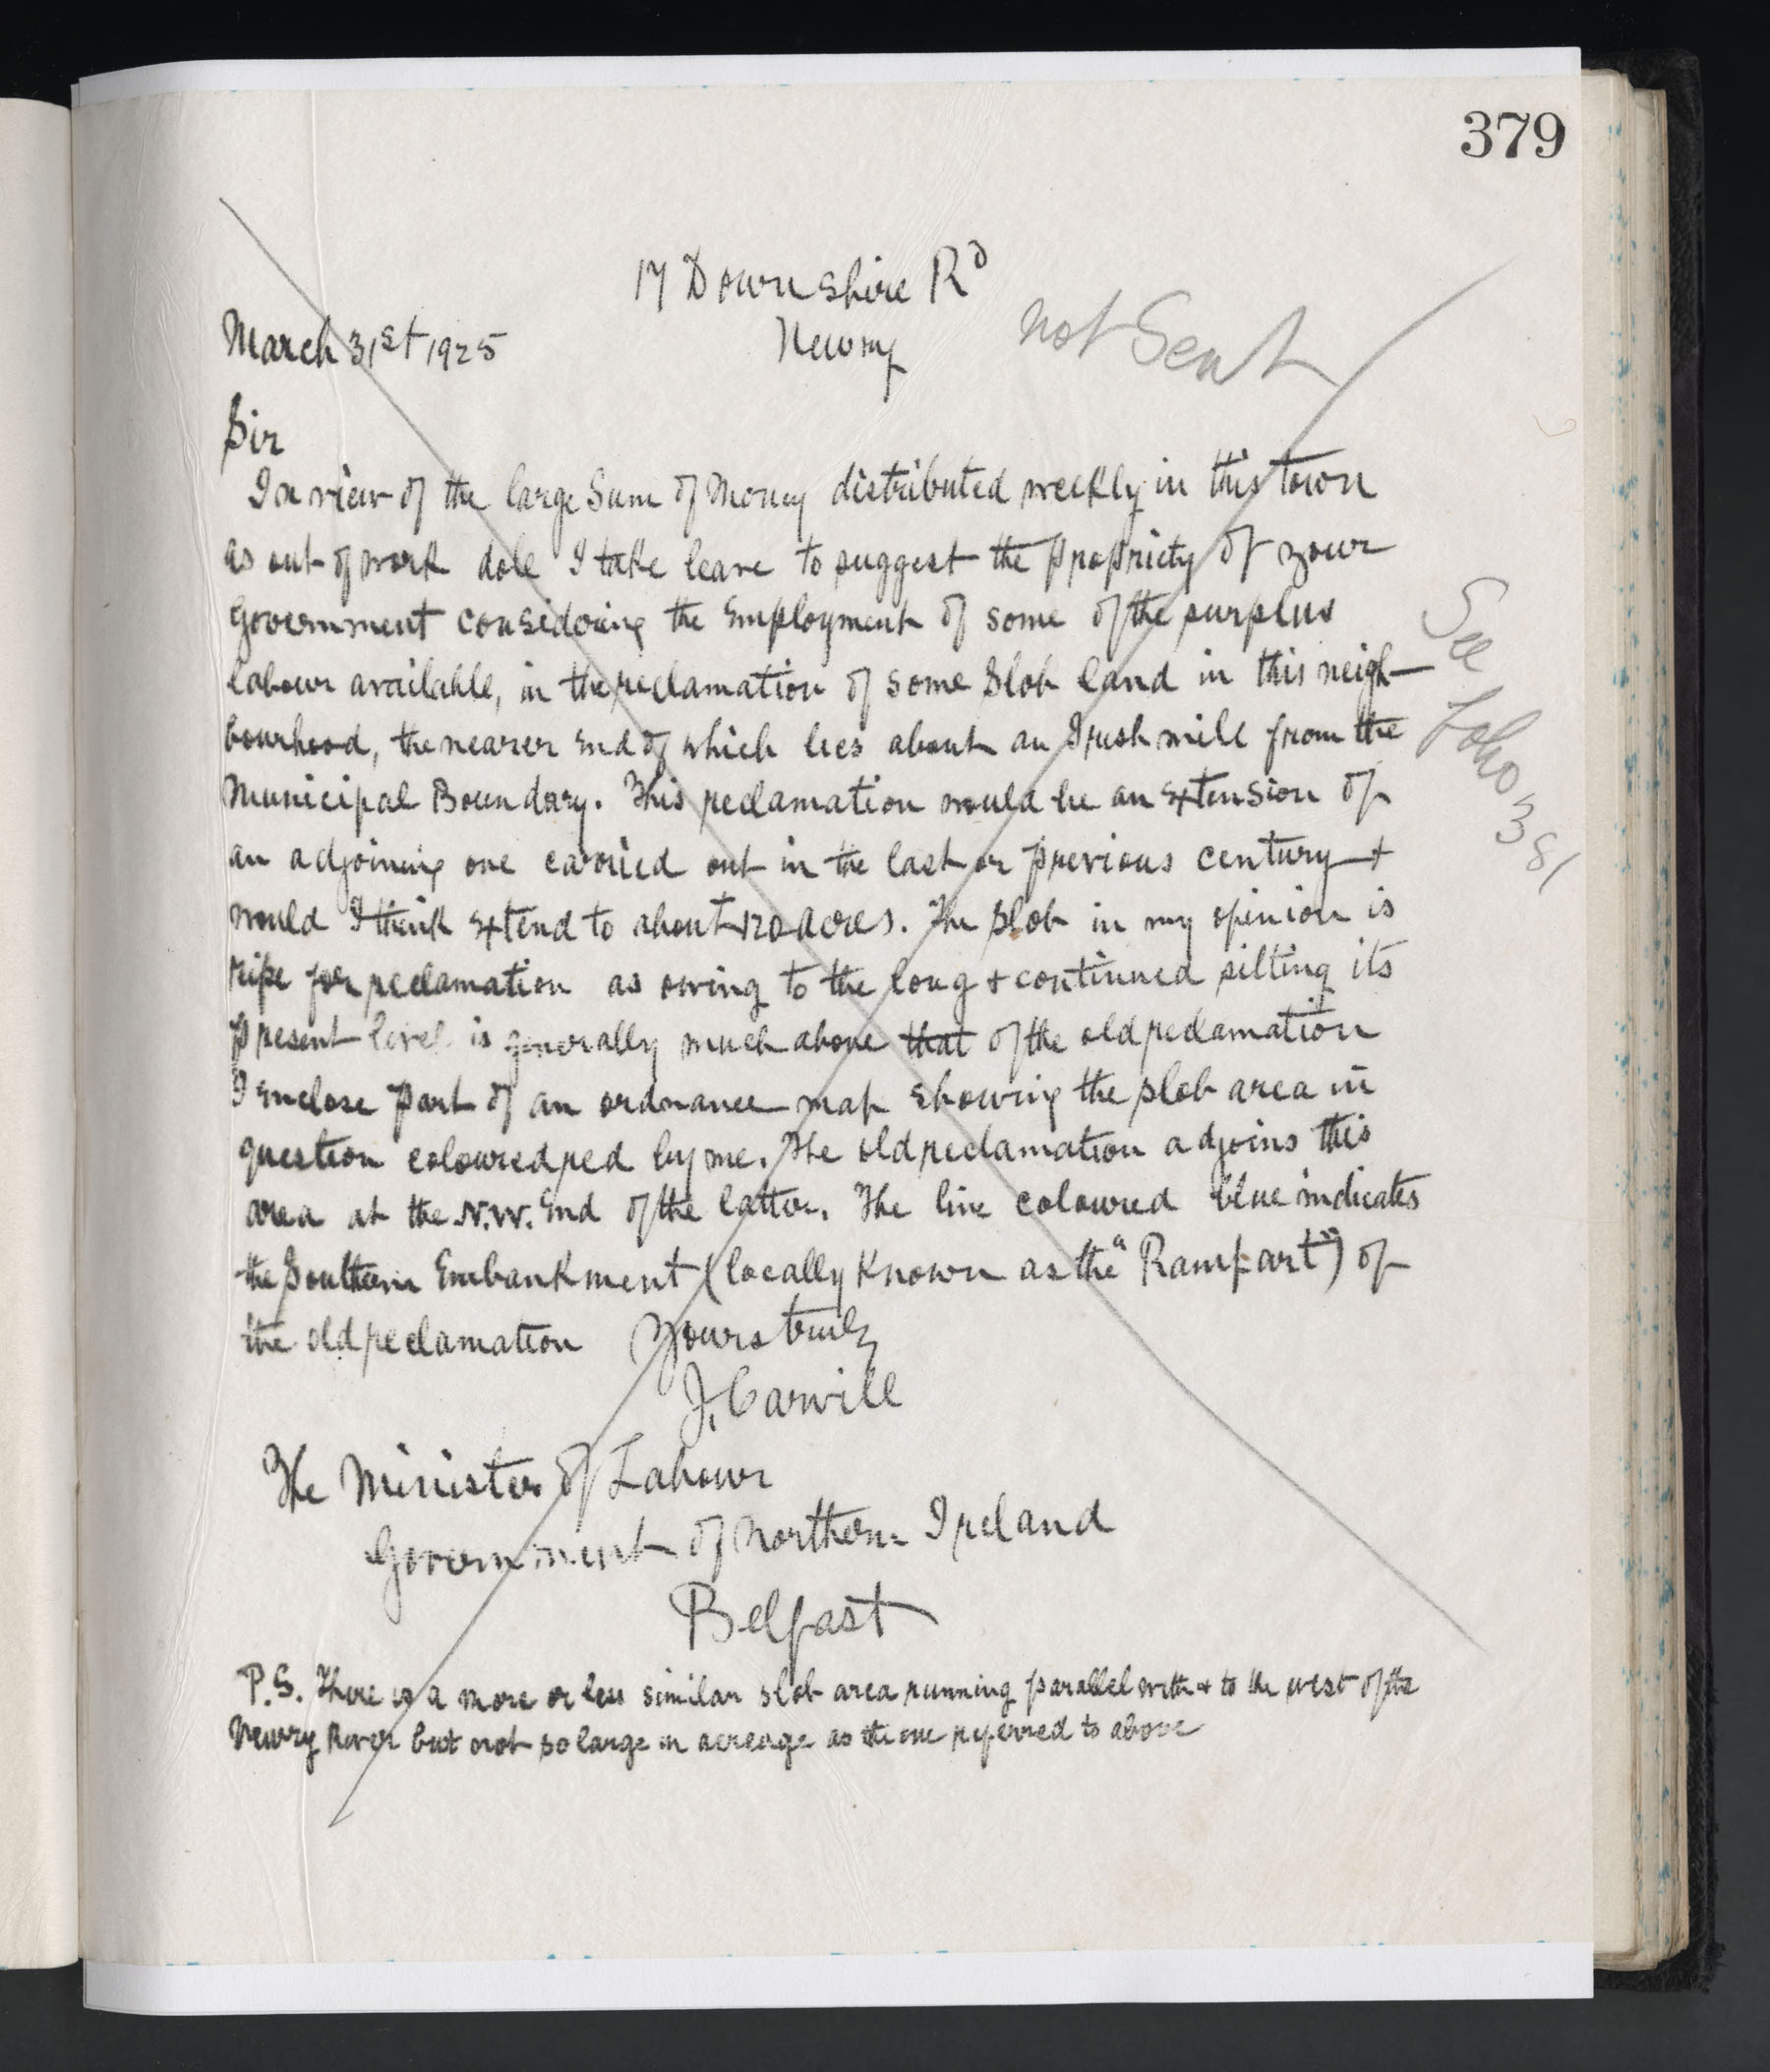 379
17 Downshire Rd
Newry
not Sent
March 31st 1925
Sir
In view of the large Sum of Money distributed weekly in this town
as out of work dole I take leave to suggest the propriety of your
Government considering the Employment of some of the surplus
labour available, in the reclamation of some Slob land in this neigh-
bourhood, the nearer end of which lies about an Irish mile from the
Municipal Boundary. This reclamation would be an extension of
an adjoining one carried out in the last or previous century +
would I think extend to about 120 acres. The slob in my opinion is
ripe for reclamation as owing to the long + continued silting its
present level is generally much above that of the old reclamation
I enclose part of an ordnance map showing the slob area in
question coloured red by me. The old reclamation adjoins this
area at the N.W. End of the latter. The line coloured blue indicates
the Southern Embankment (locally Known as the "Rampart") of
the old reclamation Yours truly
J. Carvill
The Minister of Labour
Government of Northern Ireland
Belfast
P.S. There is a more or less similar slob area running parallel with + to the west of the
Newry River but not so large in acreage as the one referred to above
See
Folio 381